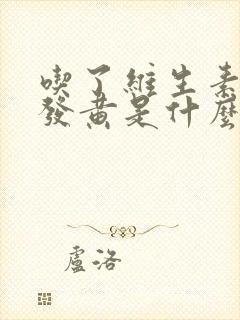 喫了維生素
發黄是什麼
盧洛